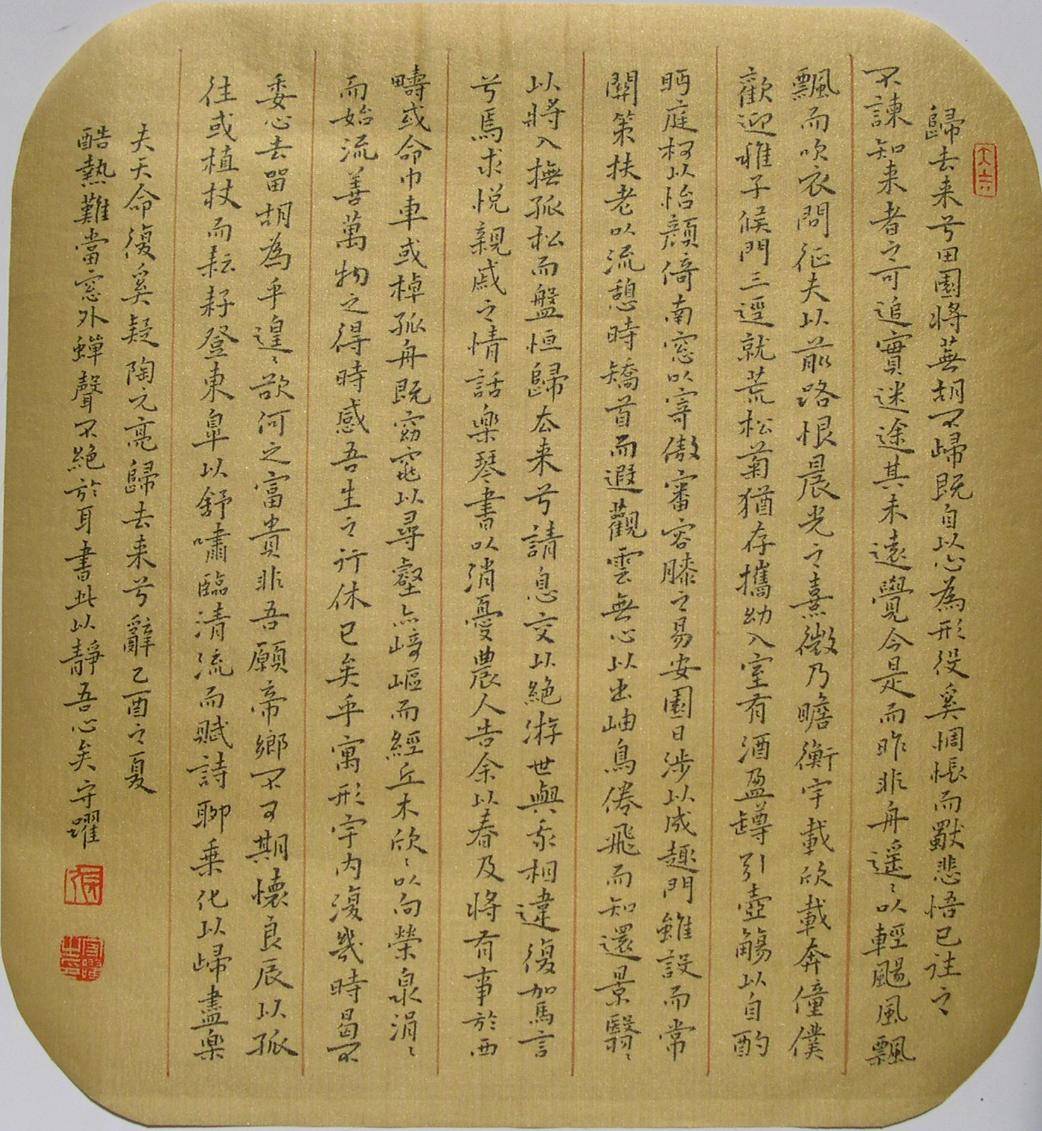 大吉
歸去来兮田園將蕪胡不歸既自以心為形役奚惆悵而獨悲悟已往之
不諫知来者之可追實迷途其未遠覺今是而昨非舟遥〻以輕颺風飄
飄而吹衣問征夫以前路恨晨光之熹微乃瞻衡宇載欣載奔僮僕
歡迎稚子候門三逕就荒松菊猶存攜幼入室有酒盈罇引壺觴以自酌
眄庭柯以怡顏倚南窓以寄傲審容膝之易安園日涉以成趣門雖設而常
關策扶老以流憩時矯首而遐觀雲無心以出岫鳥倦飛而知還景翳〻
以將入撫孤松而盤恒歸去来兮請息交以絶游世與我相違復駕言
兮焉求悦親戚之情話楽琴書以消憂農人告余以春及將有事於西
疇或命巾車或棹孤舟既窈窕以尋壑亦崎嶇而經丘木欣〻以向榮泉涓〻
而始流善萬物之得時感吾生之行休已矣乎寓形宇内復幾時曷不
委心去留胡為乎遑〻欲何之富貴非吾願帝鄉不可期懷良辰以孤
往或植杖而耘耔登東臯以舒嘯臨清流而賦詩聊乗化以歸盡楽
夫天命復奚疑陶元亮歸去来兮辭乙酉之夏
酷熱難當窓外蟬聲不絶於耳書此以靜吾心矣守躍
張